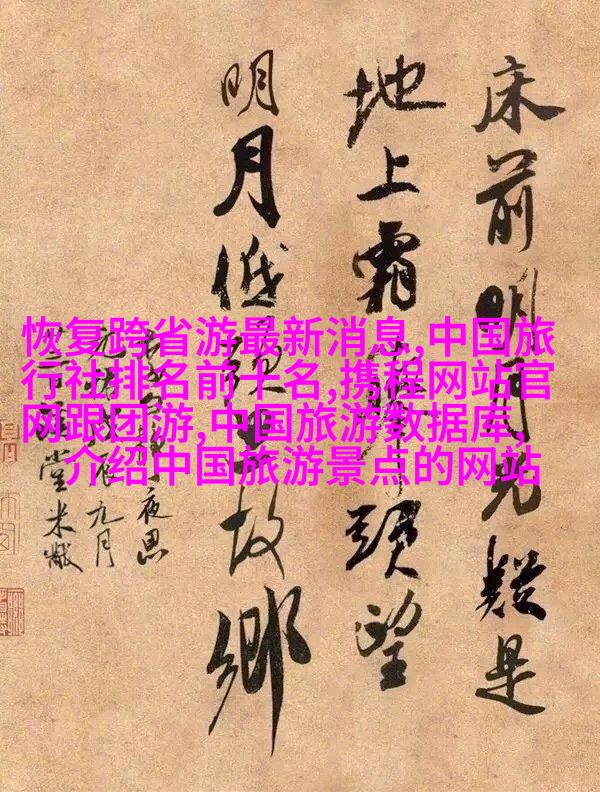 恢复跨省游最新消息,中国旅
行社排名前十名,携程网站官
网跟团游,中国旅游数据库,
介绍中国旅游景点的网站
床前明月光疑是
地上霜举头望
明月低头思故乡
夜思
九月
堂米黻